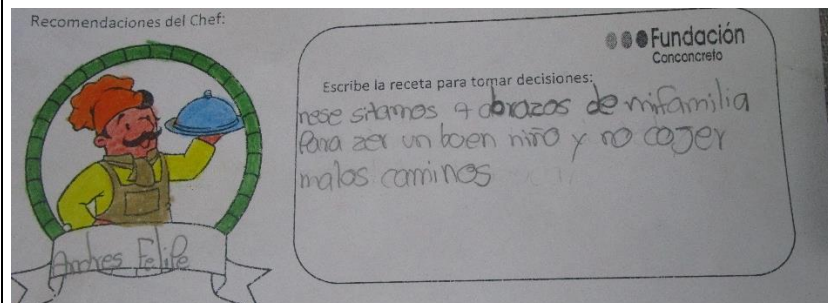 Recomendaciones del Chef:
Fundación
Conconcreto
Escribe la receta para tomar decisiones:
nese sitamos 4 abrazos de mifamilia
Para zer un boen niño y no cojer
malos caminos
Andres Felipe